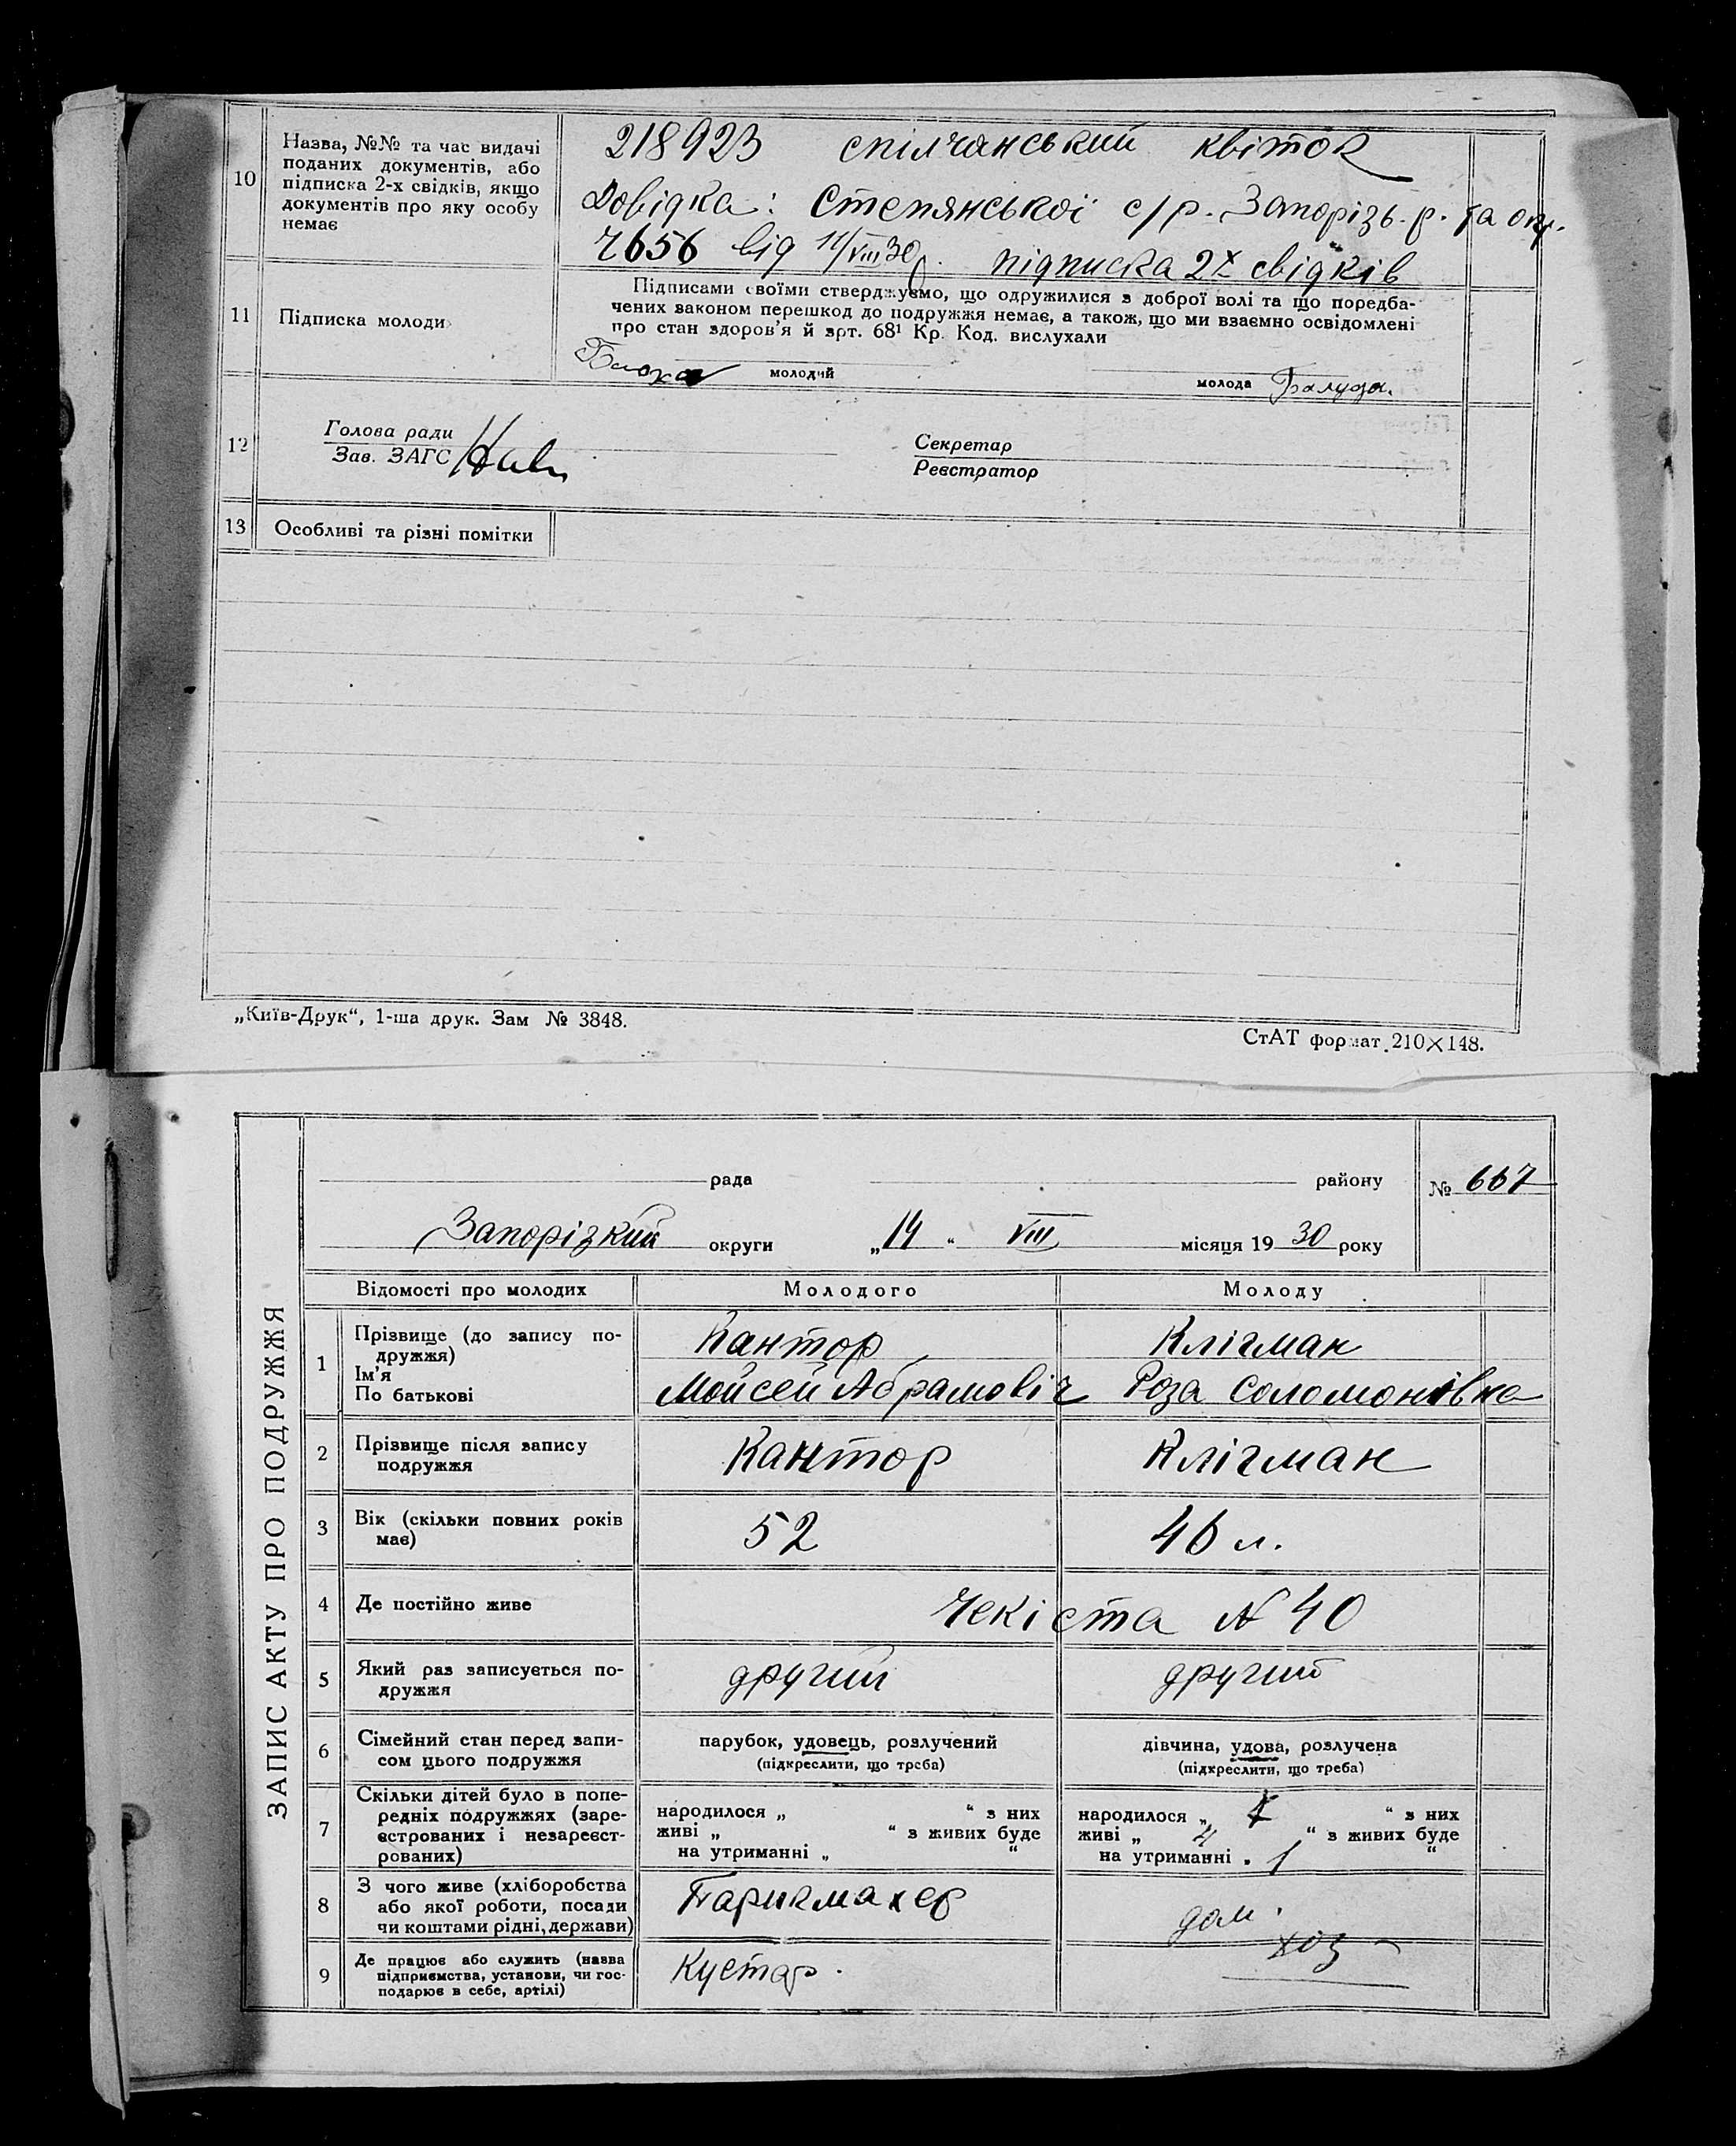 10
Назва, №№ та час видачі
поданих документів, або
підписка 2-х свідків, якщо
документів про яку особу
немає
218923 спілчанський квіток
Довідка: Степянської с/р. Запорізь. р. та окр.
7656 від 11/VIII 30 р. підписка 2х свідків
11
Підписка молоди
Підписами своїми стверджуємо, що одружилися з доброї волі та що поредба-
чених законом перешкод до подружжя немає, а також, що ми взаємно освідомлені
про стан здоров'я й арт. 68¹ Кр. Код. вислухали
молодий
молода
12
Голова ради
Зав. ЗАГС
Секретар
Реєстратор
13
Особливі та різні помітки
„Київ-Друк“, 1-ша друк. Зам № 3848.
СтАТ формат 210×148.
ЗАПИС АКТУ ПРО ПОДРУЖЖЯ
рада району № 667
Запорізкий округи „14“ VIII місяця 1930 року
Відомості про молодих Молодого Молоду
1
Прізвище (до запису по-
дружжя)
Ім'я
По батькові
Кантор
Мойсей Абрамовіч
Клігман
Роза Соломонівна
2
Прізвище після запису
подружжя
Кантор
Клігман
3
Вік (скільки повних років
має)
52
46 л.
4
Де постійно живе
Чекіста № 40
5
Який раз записується по-
дружжя
другий
другий
6
Сімейний стан перед запи-
сом цього подружжя
парубок, удовець, розлучений
(підкреслити, що треба)
дівчина, удова, розлучена
(підкреслити, що треба)
7
Скільки дітей було в попе-
редніх подружжях (заре-
єстрованих і незареєст-
рованих)
народилося „ “ з них
живі „ “ з живих буде
на утриманні „ “
народилося „ “ з них
живі „ 4 “ з живих буде
на утриманні „ 1 “
8
З чого живе (хліборобства
або якої роботи, посади
чи коштами рідні, держави)
Парикмахер
дом.
хоз
9
Де працює або служить (назва
підприємства, установи, чи гос-
подарює в себе, артілі)
Кустар.